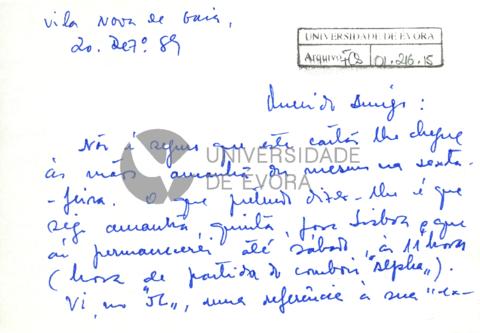 Vila Nova de Gaia,
20. Dezº. 89
UNIVERSIDADE DE EVORA
Arquivo 01.216.15
Querido Amigo:
Não é seguro que este cartão lhe chegue
às mãos amanhã ou mesmo na sexta-
-feira. O que pretendo dizer-lhe é que
sigo amanhã, quinta, para Lisboa e que
aí permanecerei até sábado, às 11 horas
(hora de partida do comboio "Alpha").
Vi, no "JL", uma referência à sua "ex-
UNIVERSIDADE
DE EVORA